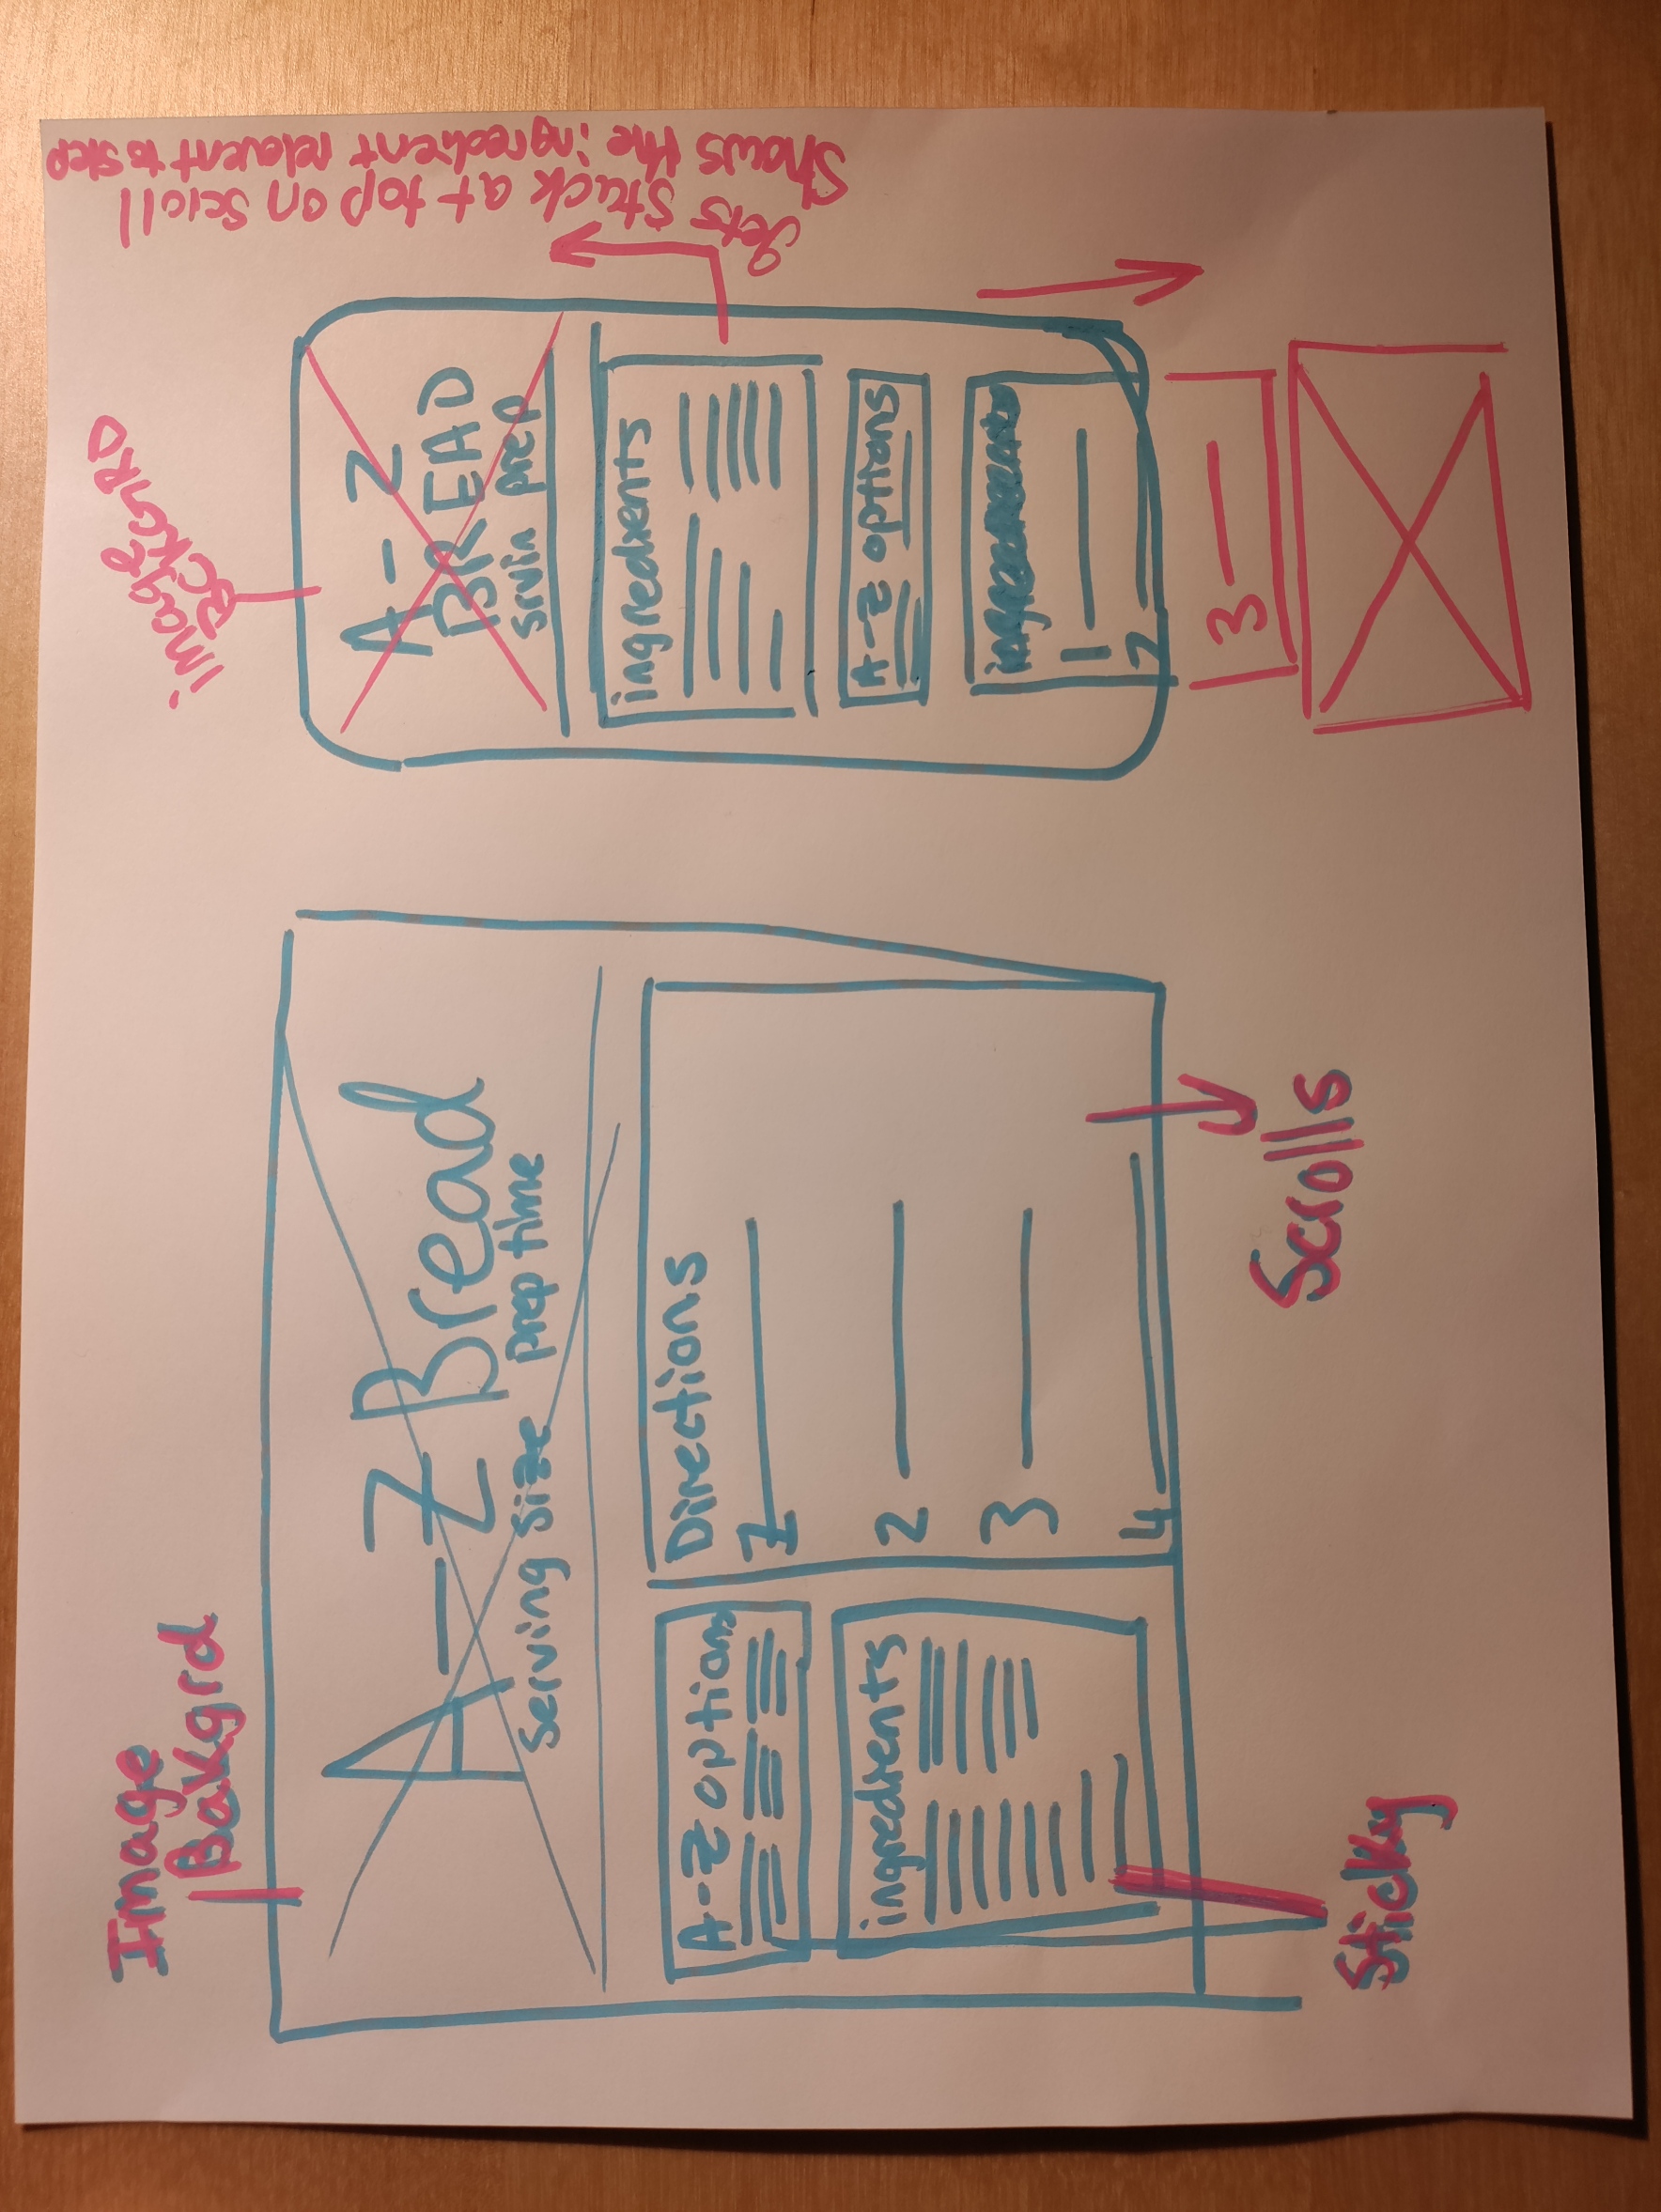 Image
Bakgrd
A-Z Bread
Serving Size prep time
A-Z options
ingredients
Directions
1
2
3
4
Sticky
Scrolls
image
BCKGRD
A-Z
BREAD
srvin prep
ingredients
A-Z options
1
2
3
gets stuck at top on scroll
Shows the ingredient relevent to step